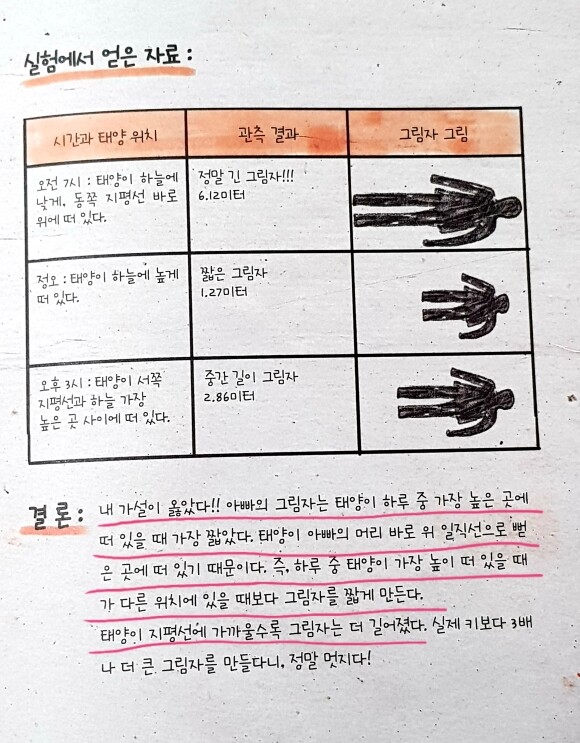 실험에서 얻은 자료 :
시간과 태양 위치
관측 결과
그림자 그림
오전 7시 : 태양이 하늘에
낮게, 동쪽 지평선 바로
위에 떠 있다.
정말 긴 그림자!!!
6.12미터
정오 : 태양이 하늘에 높게
떠 있다.
짧은 그림자
1.27미터
오후 3시 : 태양이 서쪽
지평선과 하늘 가장
높은 곳 사이에 떠 있다.
중간 길이 그림자
2.86미터
결론 :
내 가설이 옳았다!! 아빠의 그림자는 태양이 하루 중 가장 높은 곳에
떠 있을 때 가장 짧았다. 태양이 아빠의 머리 바로 위 일직선으로 뻗
은 곳에 떠 있기 때문이다. 즉, 하루 중 태양이 가장 높이 떠 있을 때
가 다른 위치에 있을 때보다 그림자를 짧게 만든다.
태양이 지평선에 가까울수록 그림자는 더 길어졌다. 실제 키보다 3배
나 더 큰 그림자를 만들다니, 정말 멋지다!